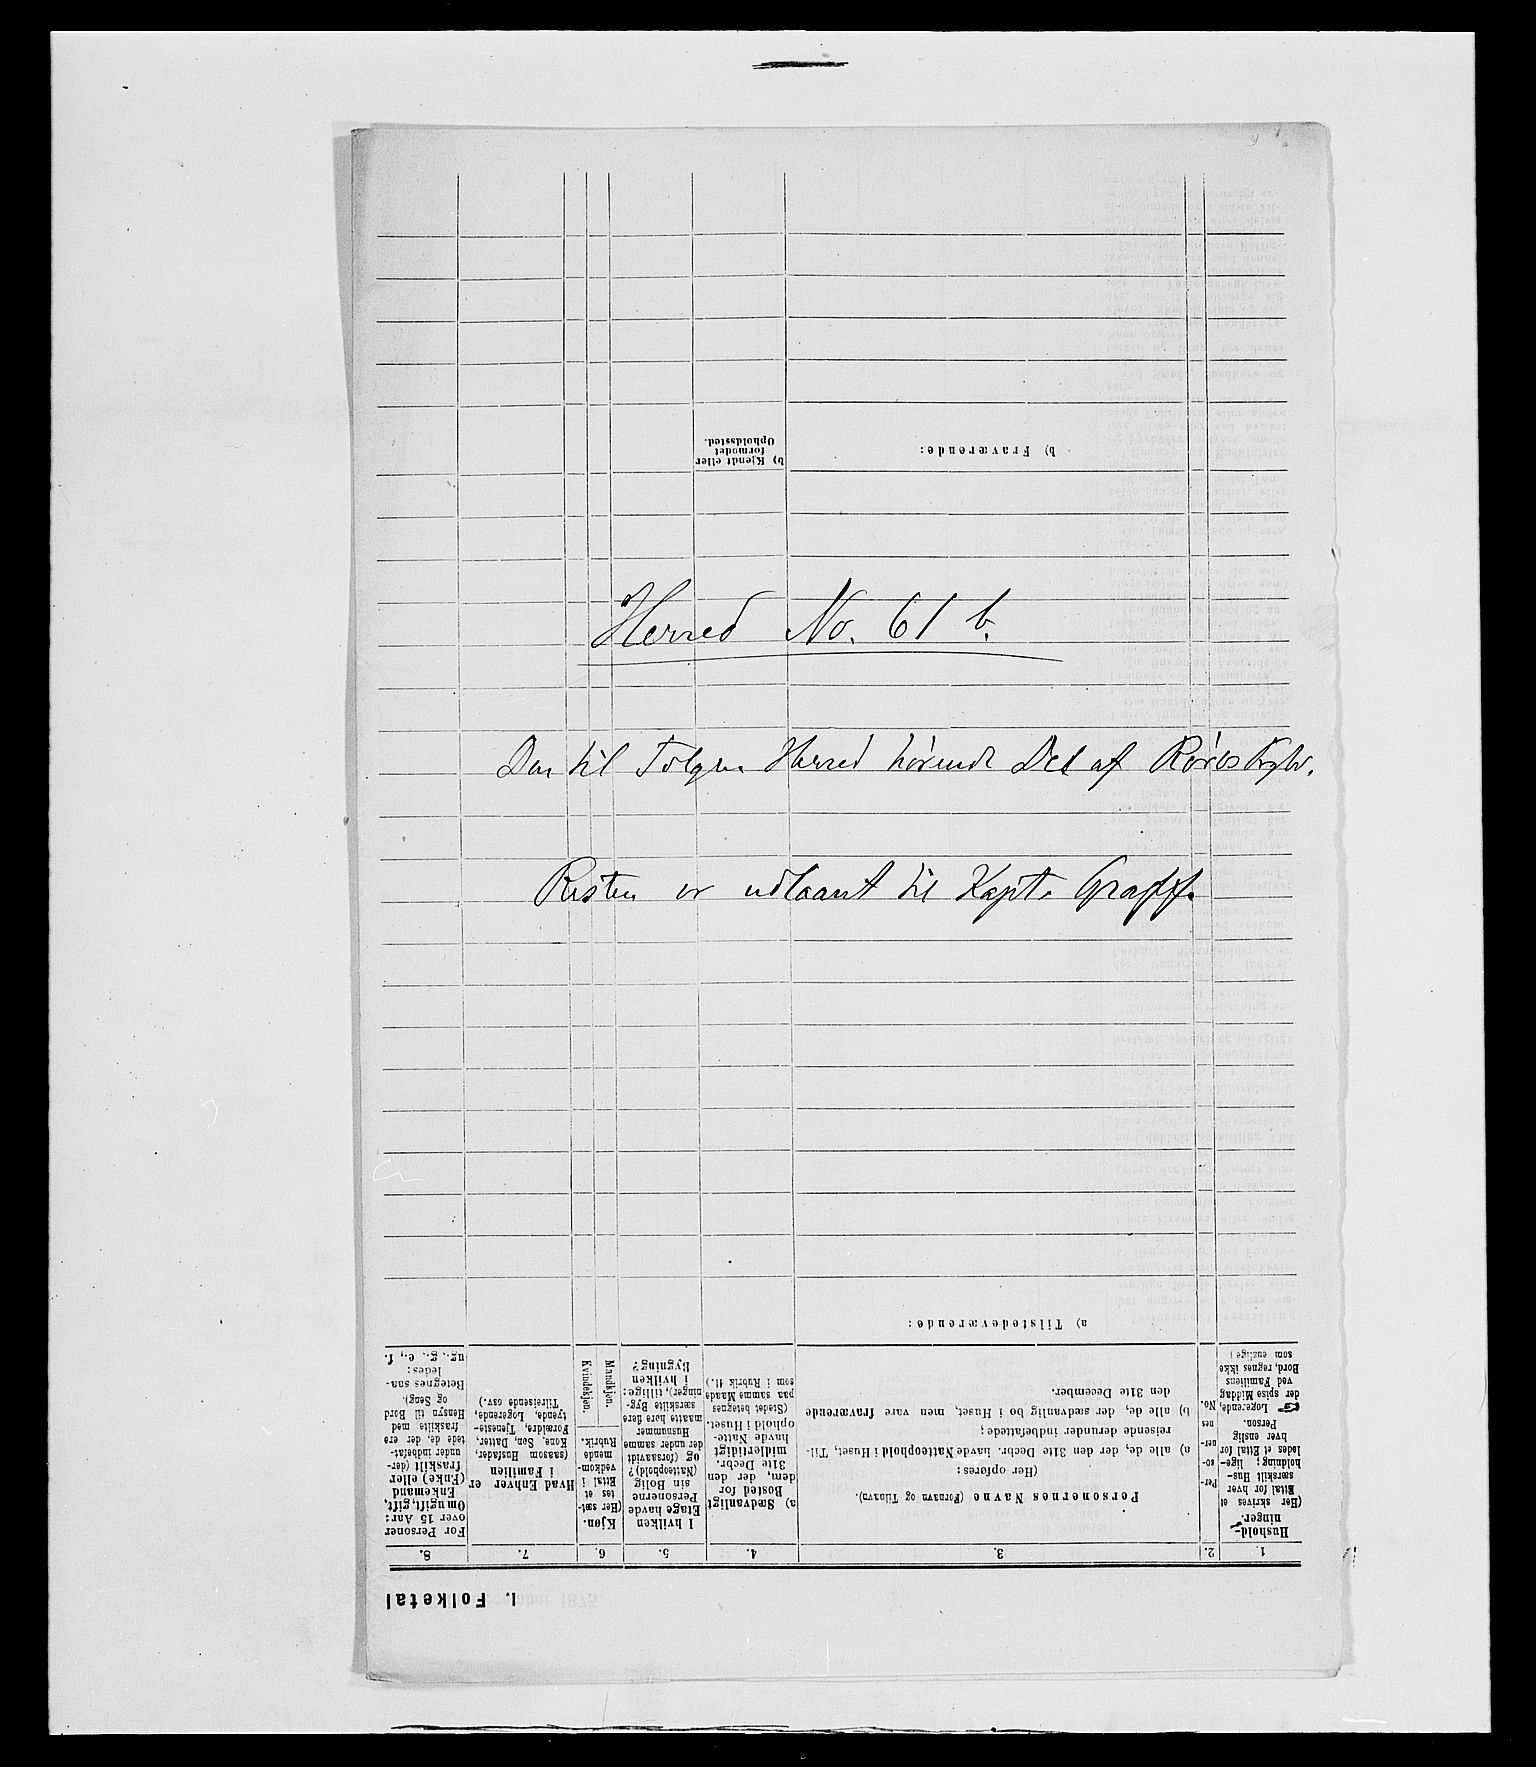 Herred No. 61 b.
Den til Tolgen Herred hørende Del af Røros Prgld.
Resten er udlaant til Kapt. Graff.
b) Fraværende:
b) Kjendt eller
formodet
Opholdssted.
a) Tilstedeværende:
I. Folketal
1.
2.
3.
4.
5.
6.
7.
8.
Hushold-
ninger.
(Her skrives et
Ettal for hver
særskilt Hus-
holdning; lige-
ledes et Ettal for
hver enslig
Person.
☞ Logerende,
der spise Middag
ved Familiens
Bord, regnes ikke
som enslige)
Per-
so-
ner-
nes
No.
Personernes Navne (Fornavn og Tilnavn).
(Her opføres:
a) alle de, der den 31te Decbr. havde Natteophold i Huset, Til-
reisende derunder indbefattede;
b) alle de, der sædvanlig bo i Huset, men vare fraværende
den 31te December.
a) Sædvanligt
Bosted for
dem, der den
31te Decbr.
midlertidigt
havde Natte-
ophold i Huset.
(Stedet betegnes
paa samme Maade
som i Rubrik 11.)
I hvilken
Etage havde
Personerne
sin Bolig
(Natteophold)?
og (forsaavidt
der under samme
Husnummer
maatte høre flere
særskilte Byg-
ninger), tillige:
i hvilken
Bygning?
Kjøn.
(Her sæt-
tes et
Ettal i
vedkom-
mende
Rubrik.
Mandkjøn.
Kvindekjøn.
Hvad Enhver er
i Familien
(saasom Husfader,
Kone, Søn, Datter,
Forældre, Tjeneste-
tyende, Logerende,
Tilreisende osv.)
For Personer
over 15 Aar:
Om ugift, gift,
Enkemand
(Enke) eller
fraskilt (der-
under indbefat-
tede de, der ere
fraskilte med
Hensyn til Bord
og Seng).
Betegnes saa-
ledes:
ug., g., e., f.